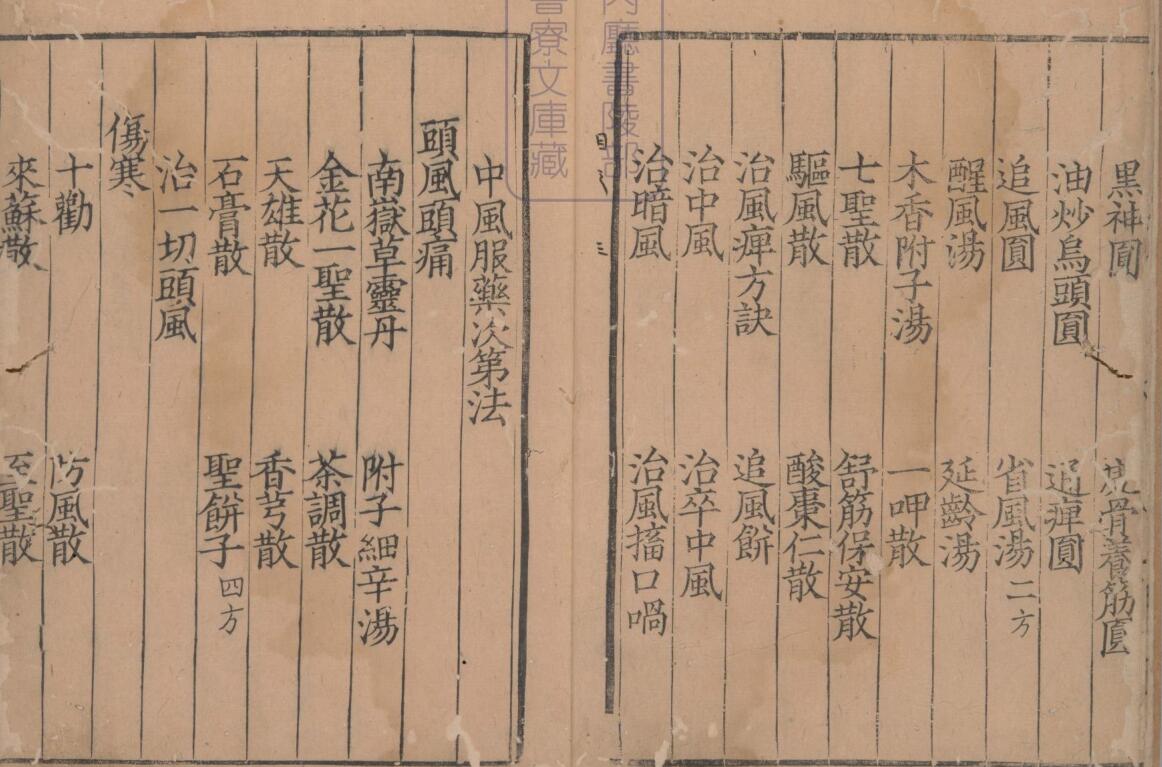 黑神圓　虎骨養筋圓
油炒烏頭圓　通痺圓
追風圓　省風湯二方
醒風湯　延齡湯
木香附子湯　一呷散
七聖散　舒筋保安散
驅風散　酸棗仁散
治風痺方訣　追風餅
治中風　治卒中風
治暗風　治風搐口喎
三
內廳書陵部
書寮文庫藏
中風服藥次第法
頭風頭痛
南嶽草靈丹　附子細辛湯
金花一聖散　茶調散
天雄散　香芎散
石膏散　聖餅子四方
治一切頭風
傷寒
十勸　防風散
來蘇散　至聖散